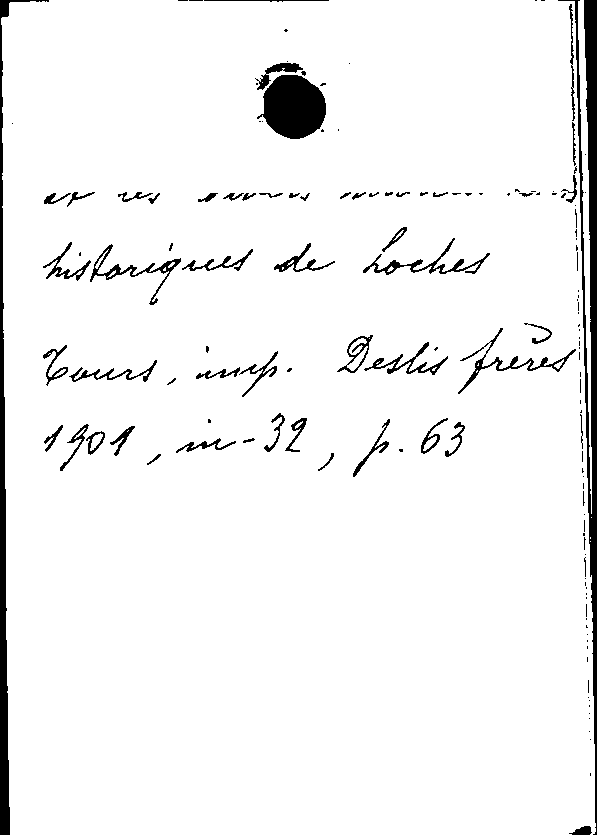 et les
historiques de Loches
Tours, imp. Deslis frères
1901, in-32, p. 63